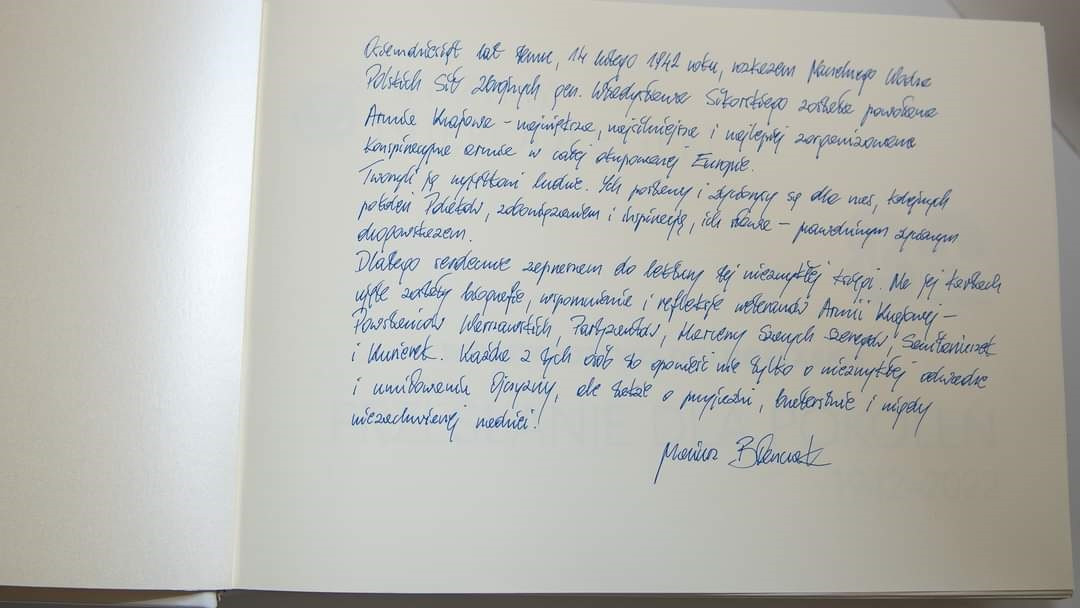 Osiemdziesiąt lat temu, 14 lutego 1942 roku, rozkazem Naczelnego Wodza
Polskich Sił Zbrojnych gen. Władysława Sikorskiego została powołana
Armia Krajowa – największa, najsilniejsza i najlepiej zorganizowana
konspiracyjna armia w całej okupowanej Europie.
Tworzyli ją wyjątkowi ludzie. Ich postawy i życiorysy są dla nas, kolejnych
pokoleń Polaków, zobowiązaniem i inspiracją, ich sława – prawdziwym życiowym
drogowskazem.
Dlatego serdecznie zapraszam do lektury tej niezwykłej księgi. Na jej kartach
ujęte zostały biografie, wspomnienia i refleksje weteranów Armii Krajowej –
Powstańców Warszawskich, Partyzantów, Harcerzy Szarych Szeregów, Sanitariuszek
i Kurierek. Każda z tych osób to opowieść nie tylko o niezwykłej odwadze
i umiłowaniu Ojczyzny, ale także o przyjaźni, braterstwie i nigdy
niezachwianej nadziei!
Mariusz Błaszczak